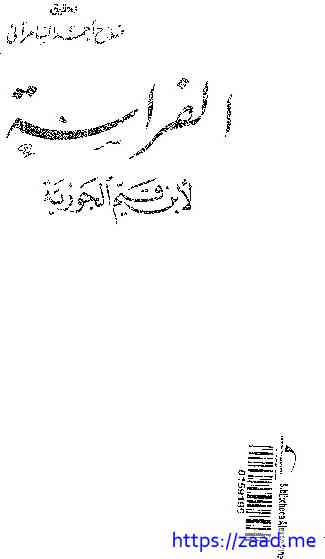 تحقيق
صلاح أحمد السامرائي
الفراسة
لابن قيم الجوزية
0159196
Bibliotheca Alexandrina
https://zaad.me